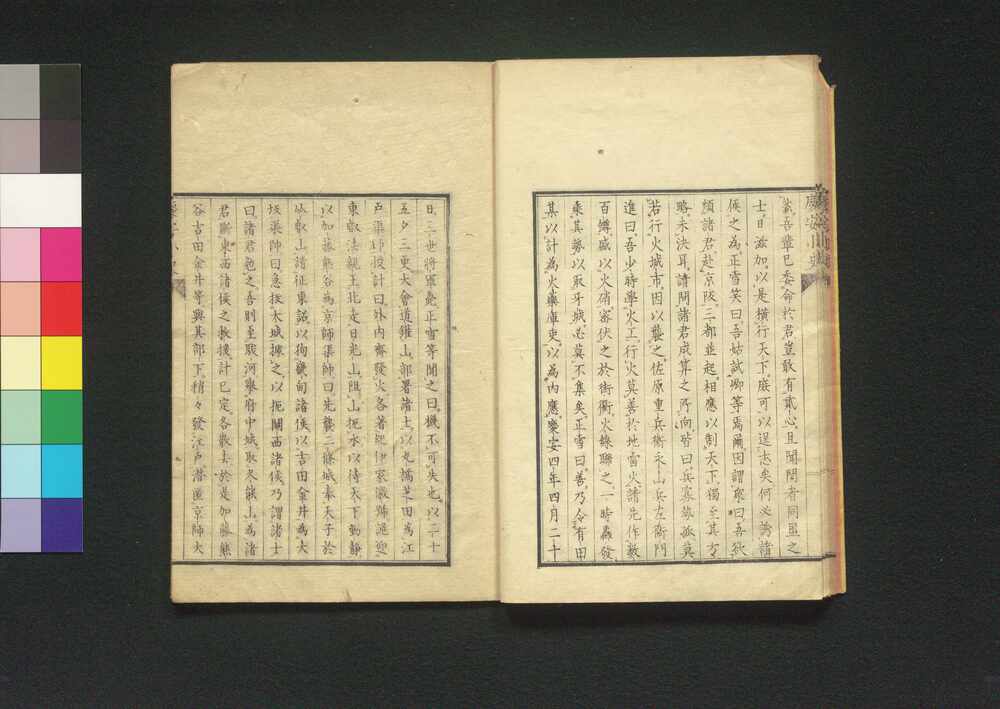 哉吾輩已委命於君豈敢有貳心且聞閧者同盟之
士日滋加以是橫行天下庶可以逞志矣何必為諸
侯之為正雪笑曰吾姑試卿等焉爾因謂衆曰吾欲
煩諸君赴京阪三都並起相應以制天下獨至其方
略未決耳請聞諸君成算之所向皆曰兵寡旅孤莫
若行火城市因以襲之佐原重兵衛永山兵左衛門
進曰吾少時學火工行火莫善於地雷火請先作數
百罇盛以火硝密伏之於街衢火線聯之一時轟發
乘其勢以取牙城必莫不集矣正雪曰善乃令有田
某以計為火藥庫吏以為內應慶安四年四月二十
日三世將軍薨正雪等聞之曰機不可失也以二十
五夕三更大會道雜山部署諸士以丸橋芝田為江
戶渠帥授計曰外內齊發火各著紀伊家徽號迎
東叡法親王北走日光山阻山扼水以待天下動靜
以加藤熊谷為京師渠帥曰先襲二條城奉天子於
叡山請征東詔以徇畿甸諸侯以吉田金井為大
坂渠帥曰急拔大城據之以扼關西諸侯乃謂諸士
曰諸君勉之吾則至駿河舉府中城取久能上為諸
君斷東西諸侯之救援計已定各散去於是加藤熊
谷吉田金井等與其部下稍々發江戶潛匿京師大